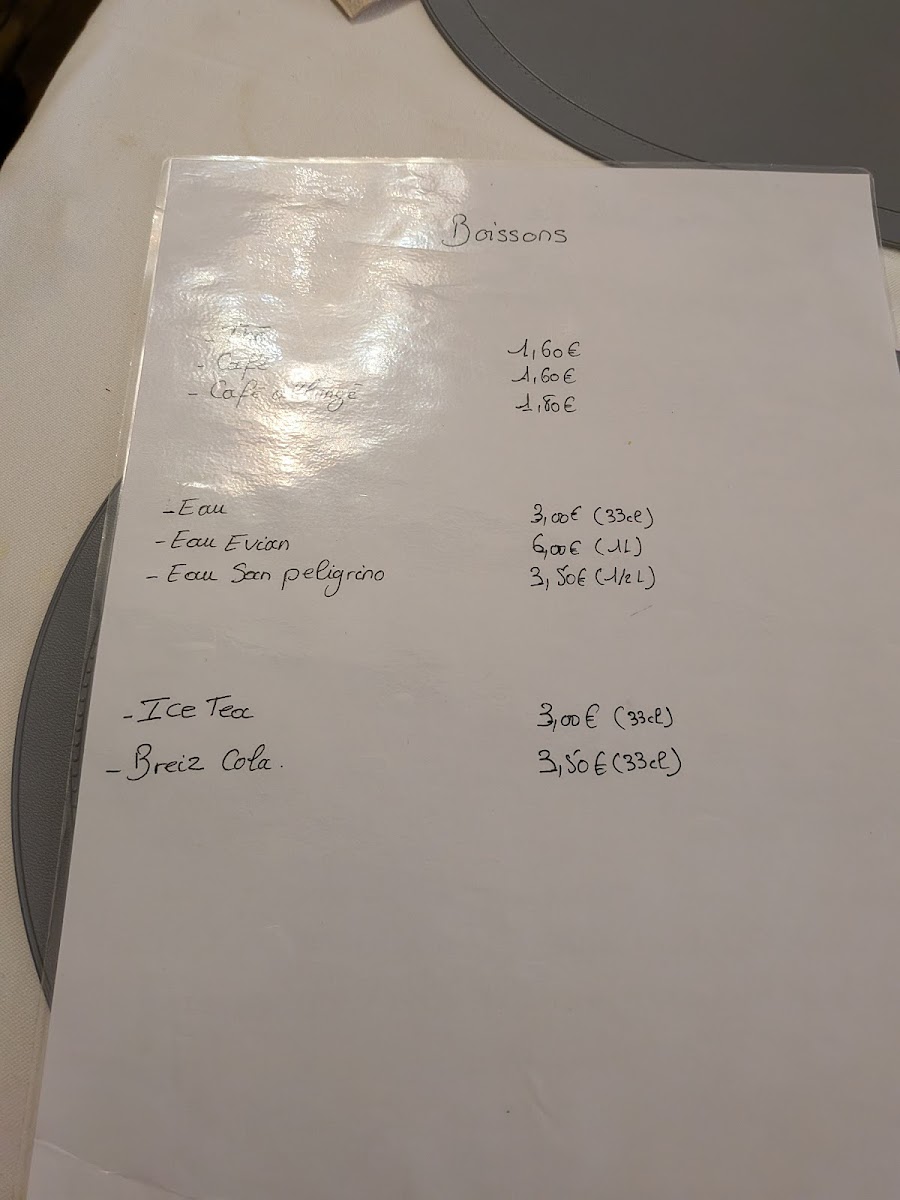 Boissons
- Thé 1,60€
- Café 1,60€
- Café allongé 1,80€
- Eau 3,00€ (33cl)
- Eau Evian 6,00€ (1L)
- Eau San peligrino 3,50€ (1/2 L)
- Ice Tea 3,00€ (33cl)
- Breiz Cola. 3,50€ (33cl)